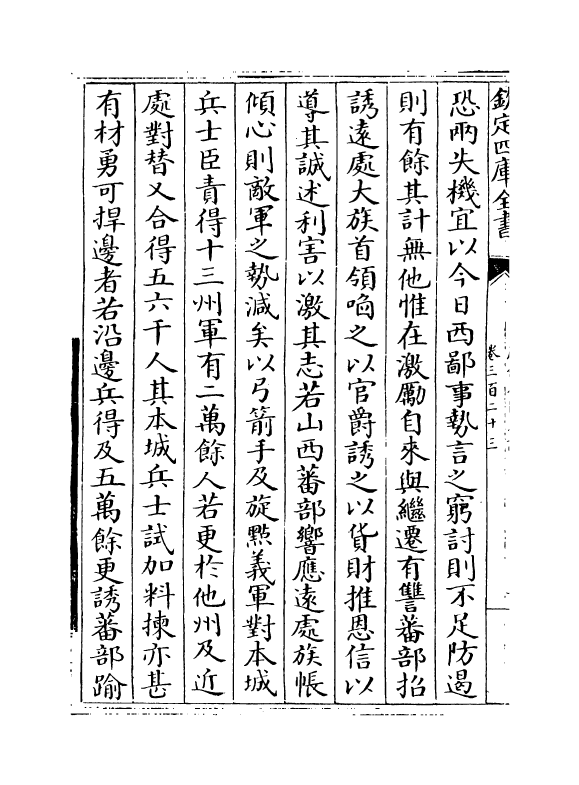 欽定四庫全書
卷三百二十三
恐兩失機宜以今日西鄙事勢言之窮討則不足防遏
則有餘其計無他惟在激勵自來與繼遷有讐蕃部招
誘遠處大族首領啗之以官爵誘之以貨財推恩信以
導其誠述利害以激其志若山西蕃部響應遠處族帳
傾心則敵軍之勢減矣以弓箭手及旋㸃義軍對本城
兵士臣責得十三州軍有二萬餘人若更於他州及近
處對替又合得五六千人其本城兵士試加料揀亦甚
有材勇可捍邊者若沿邊兵得及五萬餘更誘蕃部踰